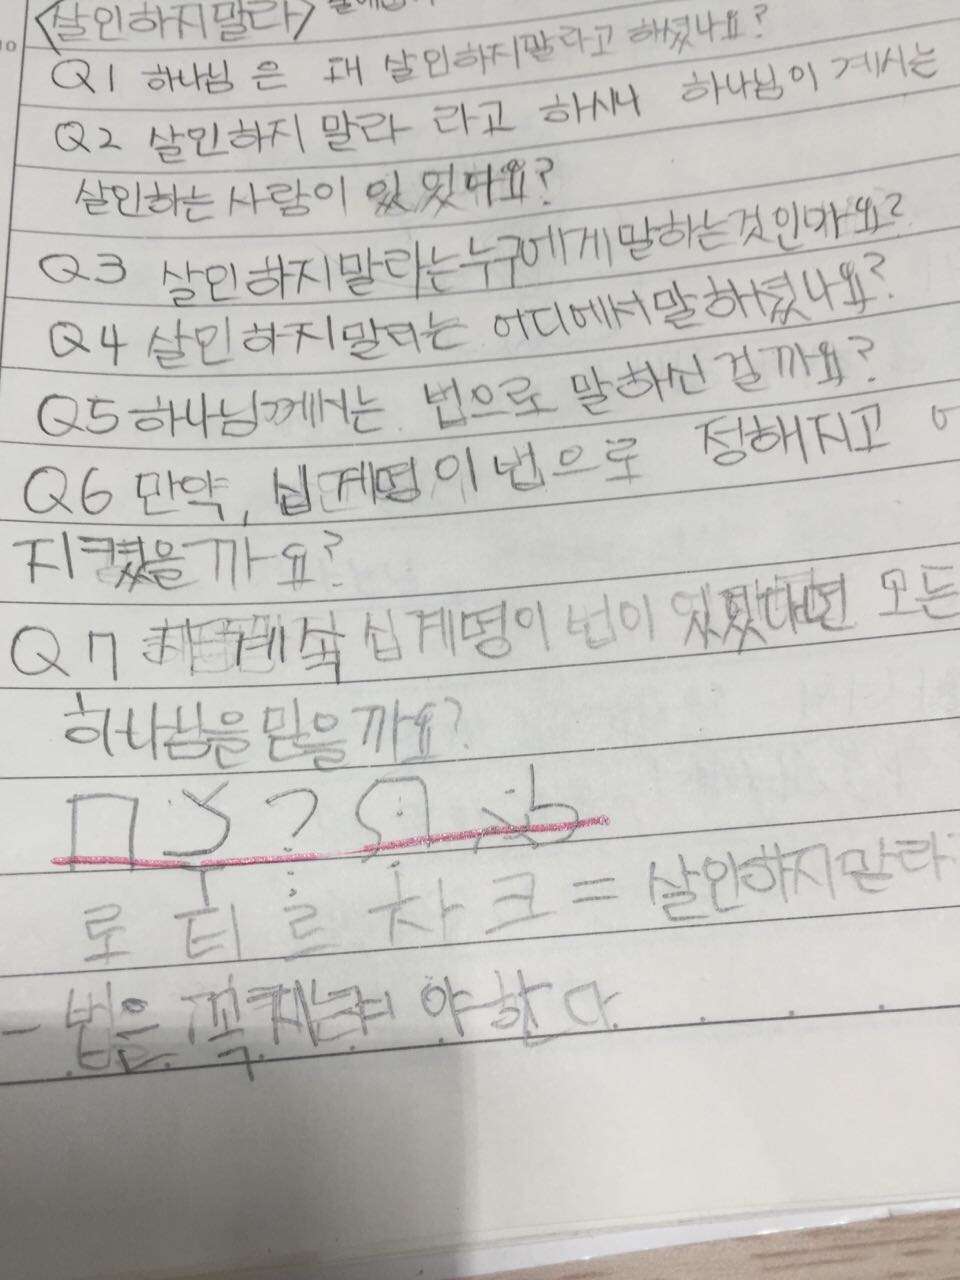 <살인하지말라>
Q1 하나님 은 왜 살인하지말라고 하셨나요?
Q2 살인하지 말라 라고 하시니 하나님이 계시는
살인하는 사람이 있 있다요?
Q3 살인하지말라는누구에게말하는것인가요?
Q4 살인하지말라는 어디에서말하셨나요?
Q5 하나님께서는 법으로 말하신 걸까요?
Q6 만약, 십계명이 법으로 정해지고
지켰을까요?
Q7 계속 십계명이 법이 있었다면 모든
하나님을믿을까요?
로 티 르 차 크 = 살인하지말라
- 법은 꼭 야 한다.